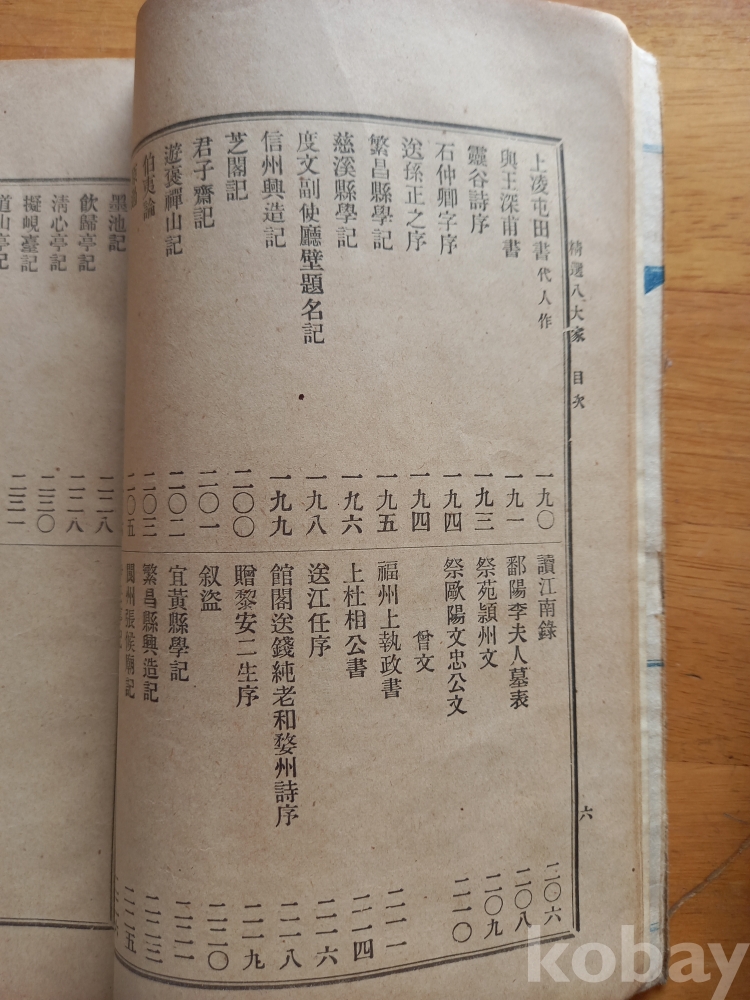 精選八大家 目次 六
上凌屯田書代人作 一九〇
與王深甫書 一九一
靈谷詩序 一九三
石仲卿字序 一九四
送孫正之序 一九四
繁昌縣學記 一九五
慈溪縣學記 一九六
度文副使廳壁題名記 一九八
信州興造記 一九九
芝閣記 二〇〇
君子齋記 二〇一
遊褒禪山記 二〇二
伯夷論 二〇三
二〇五
讀江南錄 二〇六
鄱陽李夫人墓表 二〇八
祭苑潁州文 二〇九
祭歐陽文忠公文 二一〇
曾文
福州上執政書 二一一
上杜相公書 二一四
送江任序 二一六
館閣送錢純老和婺州詩序 二一八
贈黎安二生序 二一九
叙盜 二二〇
宜黃縣學記 二二一
繁昌縣興造記 二二三
閬州張候廟記 二二五
墨池記 二二八
飲歸亭記 二二八
清心亭記 二三〇
擬峴臺記 二三一
道山亭記
kobay